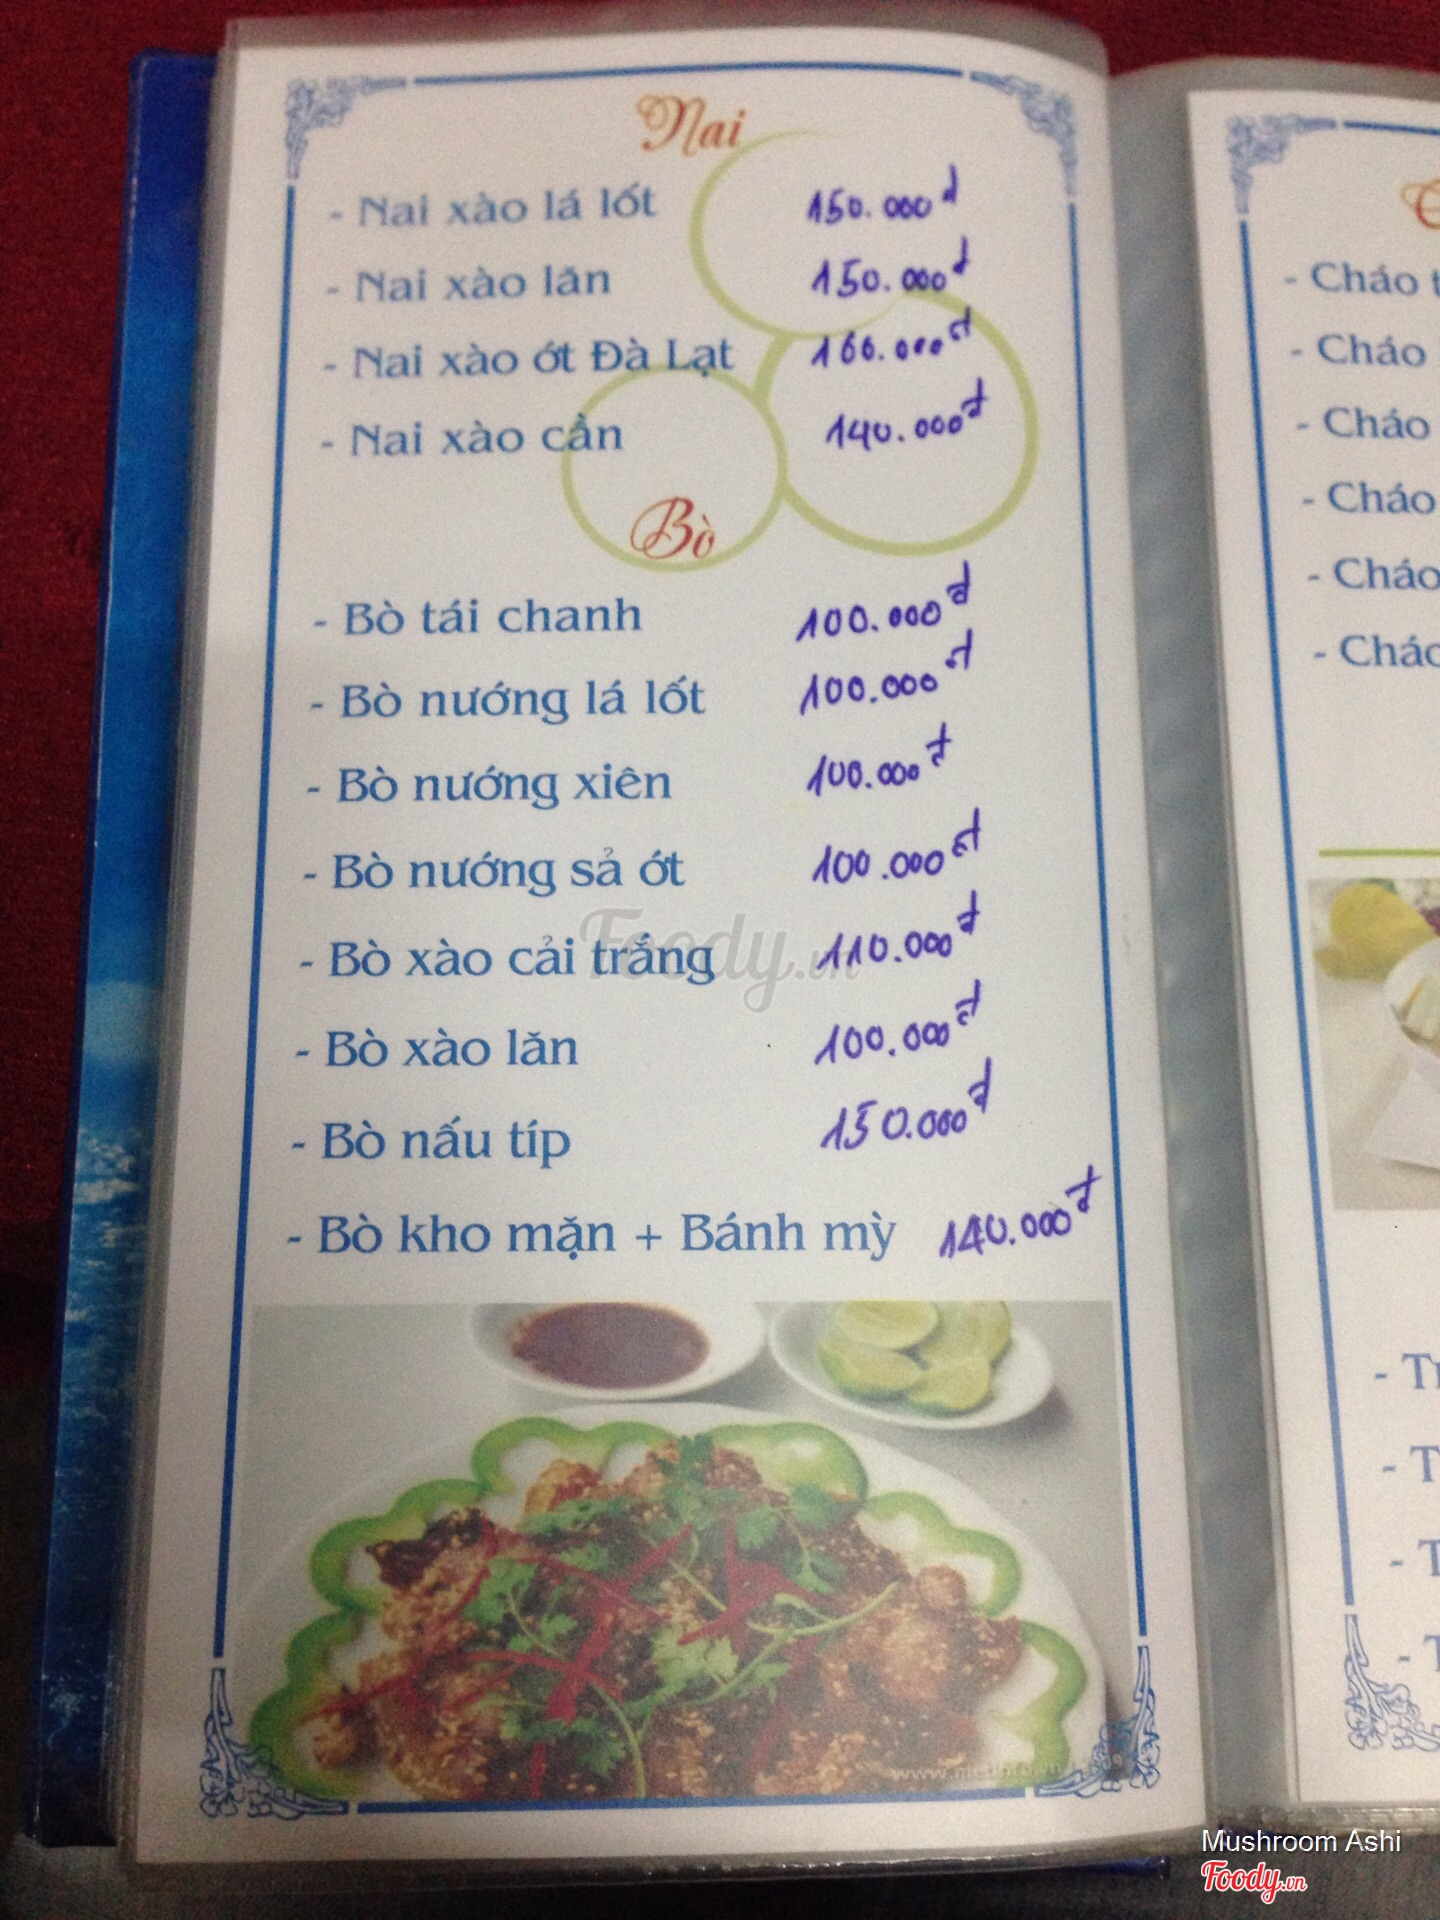 Nai
- Nai xào lá lốt 150.000đ
- Nai xào lăn 150.000đ
- Nai xào ớt Đà Lạt 160.000đ
- Nai xào cần 140.000đ
Bò
- Bò tái chanh 100.000đ
- Bò nướng lá lốt 100.000đ
- Bò nướng xiên 100.000đ
- Bò nướng sả ớt 100.000đ
- Bò xào cải trắng 110.000đ
- Bò xào lăn 100.000đ
- Bò nấu típ 150.000đ
- Bò kho mặn + Bánh mỳ 140.000đ
Foody.vn
- Cháo
- Cháo
- Cháo
- Cháo
- Cháo
- Cháo
Mushroom Ashi
Foody.vn